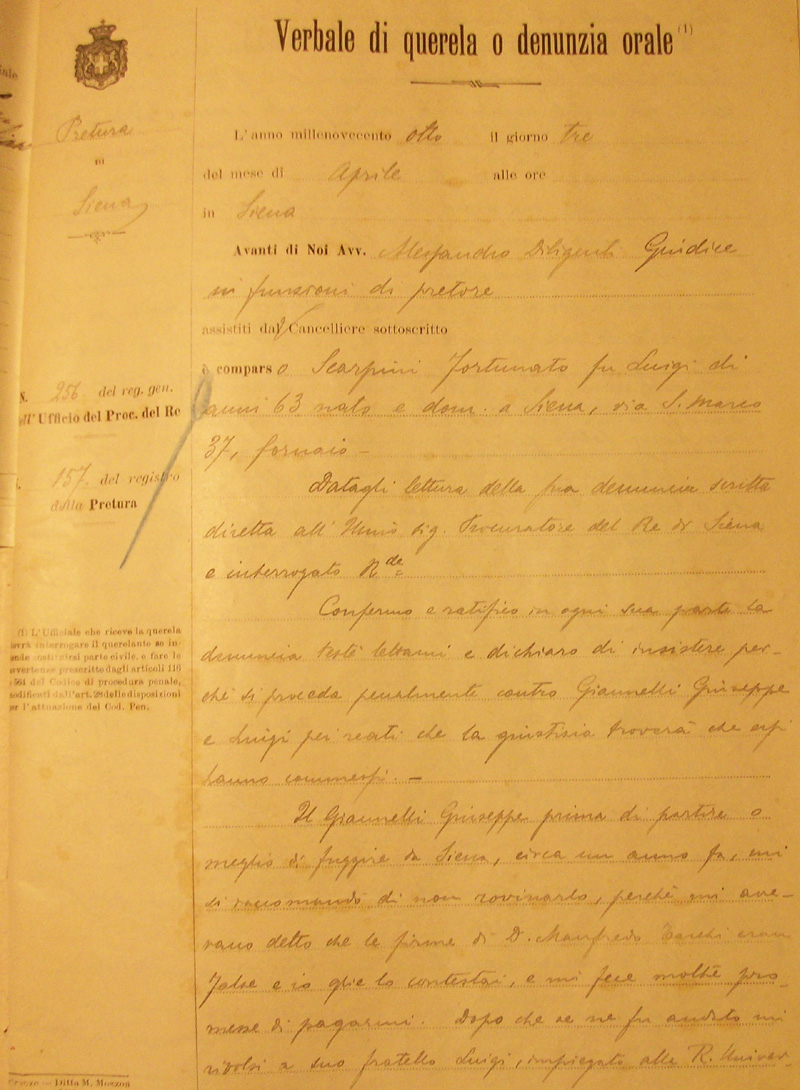 Verbale di querela o denunzia orale (1)
Pretura
in
Siena
L'anno millenovecento otto il giorno tre
del mese di Aprile alle ore
in Siena
Avanti di Noi Avv. Alessandro Diligenti Giudice
in funzioni di pretore
assistiti dal Cancelliere sottoscritto
è comparso Scarpini Fortunato fu Luigi di
anni 63 nato e dom. a Siena, via S. Marco
37, fornaio —
Datagli lettura della sua denuncia scritta
diretta all' Illmo sig. Procuratore del Re di Siena
e interrogato Rde
Confermo e ratifico in ogni sua parte la
denuncia testè lettami e dichiaro di insistere per-
chè si proceda penalmente contro Giannelli Giuseppe
e Luigi pei reati che la giustizia troverà che essi
hanno commessi. —
Il Giannelli Giuseppe prima di partire o
meglio di fuggire da Siena, circa un anno fa, mi
si raccomandò di non rovinarlo, perchè mi ave-
vano detto che le firme di D. Manfredo eran
false e io glie lo contestai, e mi fece molte pro-
messe di pagarmi. Dopo che se ne fu andato mi
rivolsi a suo fratello Luigi, impiegato alla R. Univer-
N. 256 del reg. gen.
all'Ufficio del Proc. del Re
157 del registro
della Pretura
(1) L'Ufficiale che riceve la querela
dovrà interrogare il querelante se in-
tende costituirsi parte civile, e fare le
avvertenze prescritte dagli articoli 110
e 564 del Codice di procedura penale,
modificati dall'art. 28 delle disposizioni
per l'attuazione del Cod. Pen.
Ditta M.